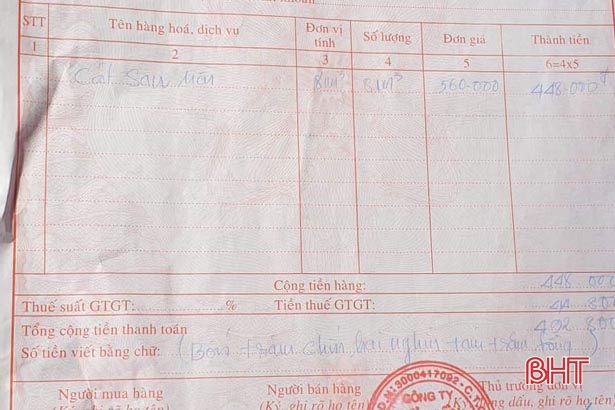 STT
Tên hàng hoá, dịch vụ
Đơn vị tính
Số lượng
Đơn giá
Thành tiền
1
2
3
4
5
6=4x5
Cát San Nền 8m³ 8m³ 560.000 448.000đ
Cộng tiền hàng: 448.000
Thuế suất GTGT: % Tiền thuế GTGT: 44.80
Tổng cộng tiền thanh toán 492.800
Số tiền viết bằng chữ: (Bốn trăm chín hai nghìn tám trăm đồng)
Người mua hàng
Người bán hàng
Thủ trưởng đơn vị
(Ký, ghi rõ họ tên)
(Ký, ghi rõ họ tên)
dấu, ghi rõ họ tên)
3000417092
CÔNG TY
BHT